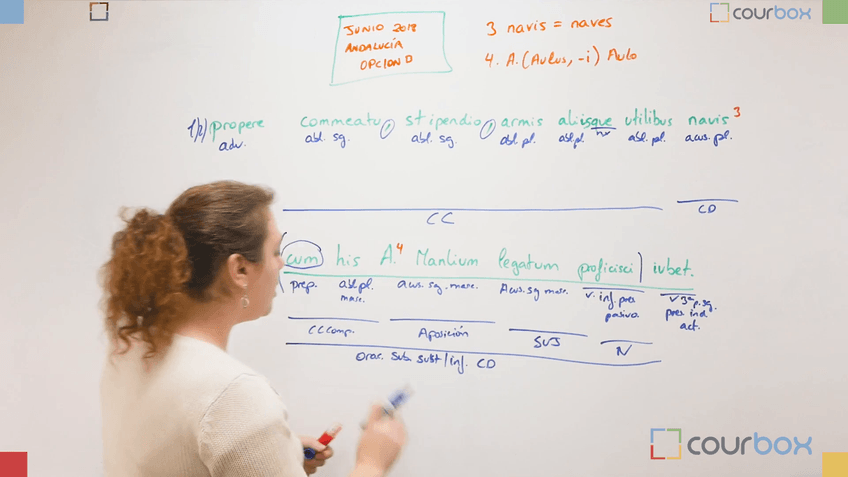 courbox
JUNIO 2018
ANDALUCÍA
OPCIÓN D
3 navis = naves
4. A. (Aulus, -i) Aulo
propere commeatu, stipendio, armis aliisque utilibus navis 3
adv. abl. sg. abl. sg. abl. pl. abl. pl. nx abl. pl. acus. pl.
CC CD
cum his A. 4 Manlium legatum proficisci) iubet.
prep. abl. pl. masc. acus. sg. masc. Acus. sg masc. v. inf. pres pasiva v 3ª p. sg. pres. ind act.
CCComp. Aposición SUJ N
Orac. Sub. Sust/inf. CD
courbox